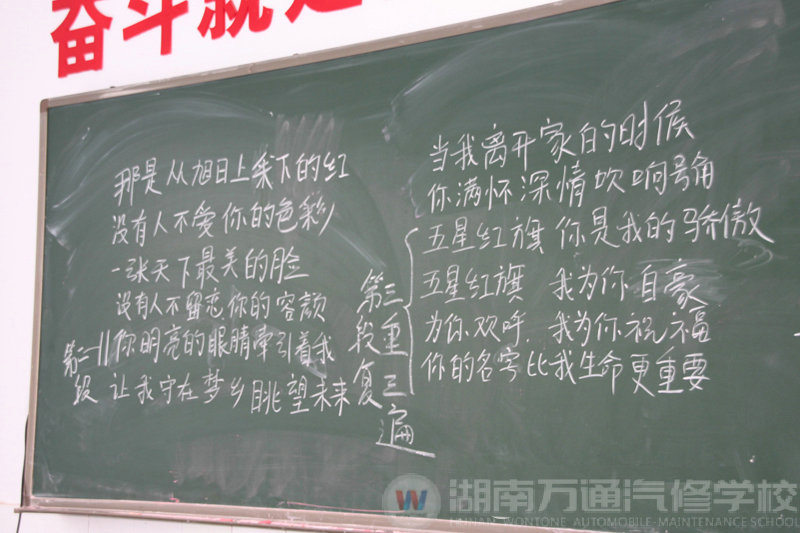 奋斗就是
那是从旭日上采下的红
没有人不爱你的色彩
一张天下最美的脸
没有人不留恋你的容颜
第二段
你明亮的眼睛牵引着我
让我守在梦乡眺望未来
当我离开家的时候
你满怀深情吹响号角
五星红旗 你是我的骄傲
五星红旗 我为你自豪
为你欢呼.我为你祝福
你的名字比我生命更重要
第三段重复三遍
湖南万通汽修学校
HUNAN WONTONE AUTOMOBILE MAINTENANCE SCHOOL